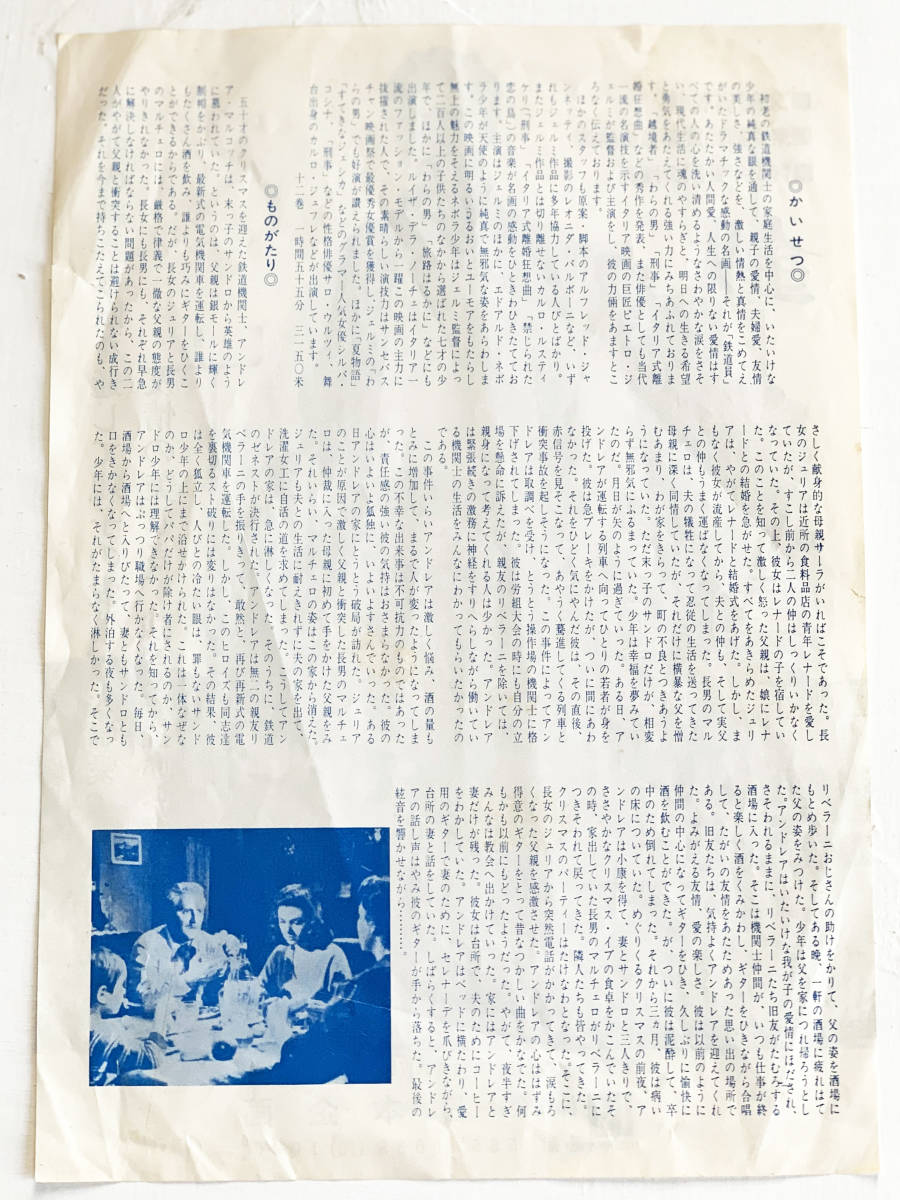 ◎かいせつ◎
初老の鉄道機関士の家庭生活を中心に、いたいけな
少年の純真な眼を通して、親子の愛情、夫婦愛、友情
の美しさ、強さなどを、激しい情熱と真情をこめてえ
がいたドラマチックな感動の名画――それが「鉄道員」
です。あたたかい人間愛、人生への限りない愛情はす
べての人の心を洗い清めるようなさわやかな涙をさそ
い、現代生活に魂のやすらぎと、明日への生きる希望
と勇気をあたえてくれる強い力にみちあふれておりま
す。「越境者」「わらの男」「刑事」「イタリア式離
婚狂想曲」などの秀作を発表、また俳優としても当代
一流の名演技を示すイタリア映画の巨匠ピエトロ・ジ
ェルミが監督および主演をし、彼の力倆をあますとこ
ろなく伝えております。
ほかのスタッフも原案・脚本のアルフレッド・ジャ
ンネッティ、撮影のレオニダ・バルボーニなど、いず
れもジェルミ作品に多年協力している人びとばかり。
またジェルミ作品とは切り離せないカルロ・ルスティ
ケリ（「刑事」「イタリア式離婚狂想曲」「禁じられた
恋の島」）の音楽が名画の感動をひときわひきたててお
ります。主演はジェルミのほかに、エドアルド・ネボ
ラ少年が天使のように純真で無邪気な姿をあらわしま
す。この映画に明るいうるおいとユーモアをもたらし
無上の魅力をそえるネボラ少年はジェルミ監督によっ
て二百人以上の子供たちのなかから選ばれた七才の少
年で、ほかに「わらの男」「旅路はるかに」などにも
出演しました。ルイザ・デラ・ノーチェはイタリア一
流のファッション・モデルから一躍この映画の主力に
抜擢された人で、その素晴らしい演技力はサンセバス
チャン映画祭で最優秀女優賞を獲得し、ジェルミの「わ
らの男」でも好演が讃えられました。ほかに「夏物語」
「すてきなジェンカ」などのグラマー人気女優シルバ・
コシナ、「刑事」などの性格俳優サロ・ウルツィ、舞
台出身のカルロ・ジュフレなどが出演しています。
十二巻　一時間五十五分　三一五〇米
◎ものがたり◎
五十才のクリスマスを迎えた鉄道機関士、アンドレ
ア・マルコッチは、末っ子のサンドロから英雄のよう
に慕われていた。というのは、父親は銀モールに輝く
制帽をかぶり、最新式の電気機関車を運転し、誰より
もたくさん酒を飲み、誰よりも巧みにギターをひくこ
とができるからである。だが、長女のジュリアと長男
のマルチェロには、厳格で律義で一徹な父親の態度が
やりきれなかった。長女にも長男にも、それぞれ早急
に解決しなければならない問題があったから、この二
人がやがて父親と衝突することは避けられない成行き
だった。それを今まで持ちこたえてこられたのも、や
さしく献身的な母親サーラがいればこそであった。長
女のジュリアは近所の食料品店の青年レナードを愛し
ていたが、すこし前から二人の仲はしっくりいかなく
なっていた。その上、彼女はレナードの子を宿してい
た。このことを知って激しく怒った父親は、娘にレナ
ードとの結婚を急がせた。すべてをあきらめたジュリ
アは、やがてレナードと結婚式をあげた。しかし、ま
もなく彼女が流産してから、夫との仲も、そして実父
との仲もうまく運ばなくなってしまった。長男のマル
チェロは、夫の犠牲になって忍従の生活を送ってきた
母親に深く同情していたが、それだけに横暴な父を憎
むあまり、わが家をきらって、町の不良とつきあうよ
うになっていた。ただ末っ子のサンドロだけが、相変
らず無邪気にふるまっていた。少年は幸福を夢みてい
たのだ。月日が矢のように過ぎていった。ある日、ア
ンドレアが運転する列車へ向ってひとりの若者が身を
投げた。彼は急ブレーキをかけたが、ついに間にあわ
なかった。それをひどく気にやんだ彼は、その直後、
赤信号を見そこなって、あやうく驀進してくる列車と
衝突事故を起しそうになった。この事件によってアン
ドレアは取調べを受け、とうとう操作場の機関士に格
下げされてしまった。彼は労組大会の時にも自分の立
場を懸命に訴えたが、親友のリベラーニを除いては、
親身になって考えてくれる人は少かった。アンドレア
は緊張続きの激務に神経をすりへらしながら働いてい
る機関士の生活をみんなにわかってもらいたかったの
である。
この事件いらいアンドレアは激しく悩み、酒の量も
とみに増加して、まるで人が変ったようになってしま
った。この不幸な出来事は不可抗力のものではあった
が、責任感の強い彼の気持はおさまらなかった。彼の
心はいよいよ孤独に、いよいよすさんでいった。ある
日アンドレアの家にとうとう破局が訪れた。ジュリア
のことが原因で激しく父親と衝突した長男のマルチェ
ロは、仲裁に入った母親に初めて手をかけた父親をみ
た。それいらい、マルチェロの姿はこの家から消えた。
ジュリアも夫との生活に耐えきれずに夫の家を出て、
洗濯女工に自活の道を求めてしまった。こうしてアン
ドレアの家は、急に淋しくなった。そのうちに、鉄道
のゼネストが決行された。アンドレアは無二の親友リ
ベラーニの手を振りきって、敢然と、再び再新式の電
気機関車を運転した。しかし、このヒロイズも同志達
を裏切るスト破りには変りがなかった。その結果、彼
は全く孤立し、人びとの冷たい眼は、罪もないサンド
ロ少年の上にまで浴せかけられた。これは一体なぜな
のか、どうしてパパだけが除け者にされるのか、サン
ドロ少年には理解できなかった。それを知ってから、
アンドレアはぷっつり職場へ行かなくなった。毎日、
酒場から酒場へと入りびたって、妻ともサンドロとも
口をきかなくなってしまった。外泊する夜も多くなっ
た。少年には、それがたまらなく淋しかった。そこで
リベラーニおじさんの助けをかりて、父の姿を酒場に
もとめ歩いた。そしてある晩、一軒の酒場に疲れはて
た父の姿をみつけた。少年は父を家につれ帰ろうとし
た。アンドレアはいたいけな我が子の愛情にほだされ、
さそわれるままに、リベラーニたち旧友がたむろする
酒場に入った。そこは機関士仲間が、いつも仕事が終
ると楽しく酒をくみかわし、ギターをひきながら合唱
して、たがいの友情をあたためあった思い出の場所で
ある。旧友たちは、気持よくアンドレアを迎えてくれ
た。よみがえる友情、愛の楽しさ。彼は以前のように
仲間の中心になってギターをひき、久しぶりに愉快に
酒を飲むことができた。が、ついに彼は泥酔して、卒
中のため倒れてしまった。それから三ヵ月、彼は病い
の床についていた。めぐりくるクリスマスの前夜、ア
ンドレアは小康を得て、妻とサンドロと三人きりで、
ささやかなクリスマス・イブの食卓をかこんでいたそ
の時、家出していた長男のマルチェロがリベラーニに
つきそわれて戻ってきた。隣人たちも皆やってきた。
クリスマスのパーティーはたけなわとなった。そこに、
長女のジュリアから突然電話がかかってきて、涙もろ
くなった父親を感激させた。アンドレアの心ははずみ
得意のギターをとって昔なつかしい曲をかなでた。何
もかも以前にもどったようだった。やがて、夜半すぎ
みんなは教会へ出かけていった。家にはアンドレアと
妻だけが残った。彼女は台所で、夫のためにコーヒー
をわかしていた。アンドレアはベッドに横たわり、愛
用のギターで妻のために、セレナーデを爪びきながら、
台所の妻と話をしていた。しばらくすると、アンドレ
アの話し声はやみ彼のギターが手から落ちた。最後の
絃音を響かせながら………